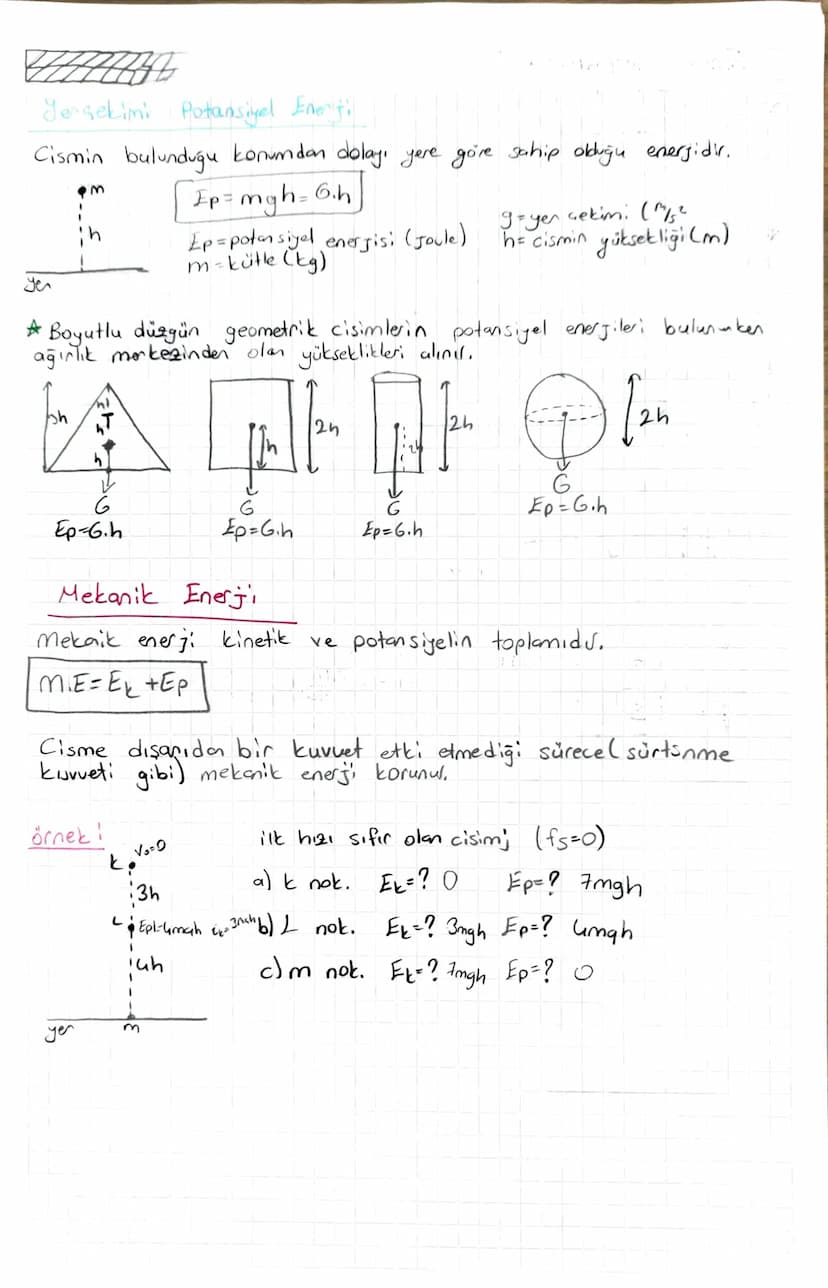 Yerçekimi Potansiyel Enerji
Cismin bulunduğu konumdan dolayı yere göre sahip olduğu enerjidir.
m
h
yer
Ep = mgh = G.h
Ep = potansiyel enerjisi (Joule)
m = kütle (kg)
g = yer çekimi (m/s²
h = cismin yüksekliği (m)
★ Boyutlu düzgün geometrik cisimlerin potansiyel enerjileri bulunurken
ağırlık merkezinden olan yükseklikleri alınır.
3h h h h G
h 2h G
2h G
2h G
Ep=G.h Ep=G.h Ep=G.h Ep=G.h
Mekanik Enerji
Mekaik enerji kinetik ve potansiyelin toplamıdır.
M.E = Ek + Ep
Cisme dışarıdan bir kuvvet etki etmediği sürece (sürtünme
kuvveti gibi) mekanik enerji korunur.
örnek:
ilk hızı sıfır olan cisim; (fs=0)
k V₀=0
3h
a) k nok. Ek=? 0 Ep=? 7mgh
L EpL=4mgh Ek=3mgh
b) L nok. Ek=? 3mgh Ep=? 4mgh
4h
c) m nok. Ek=? 7mgh Ep=? 0
yer m